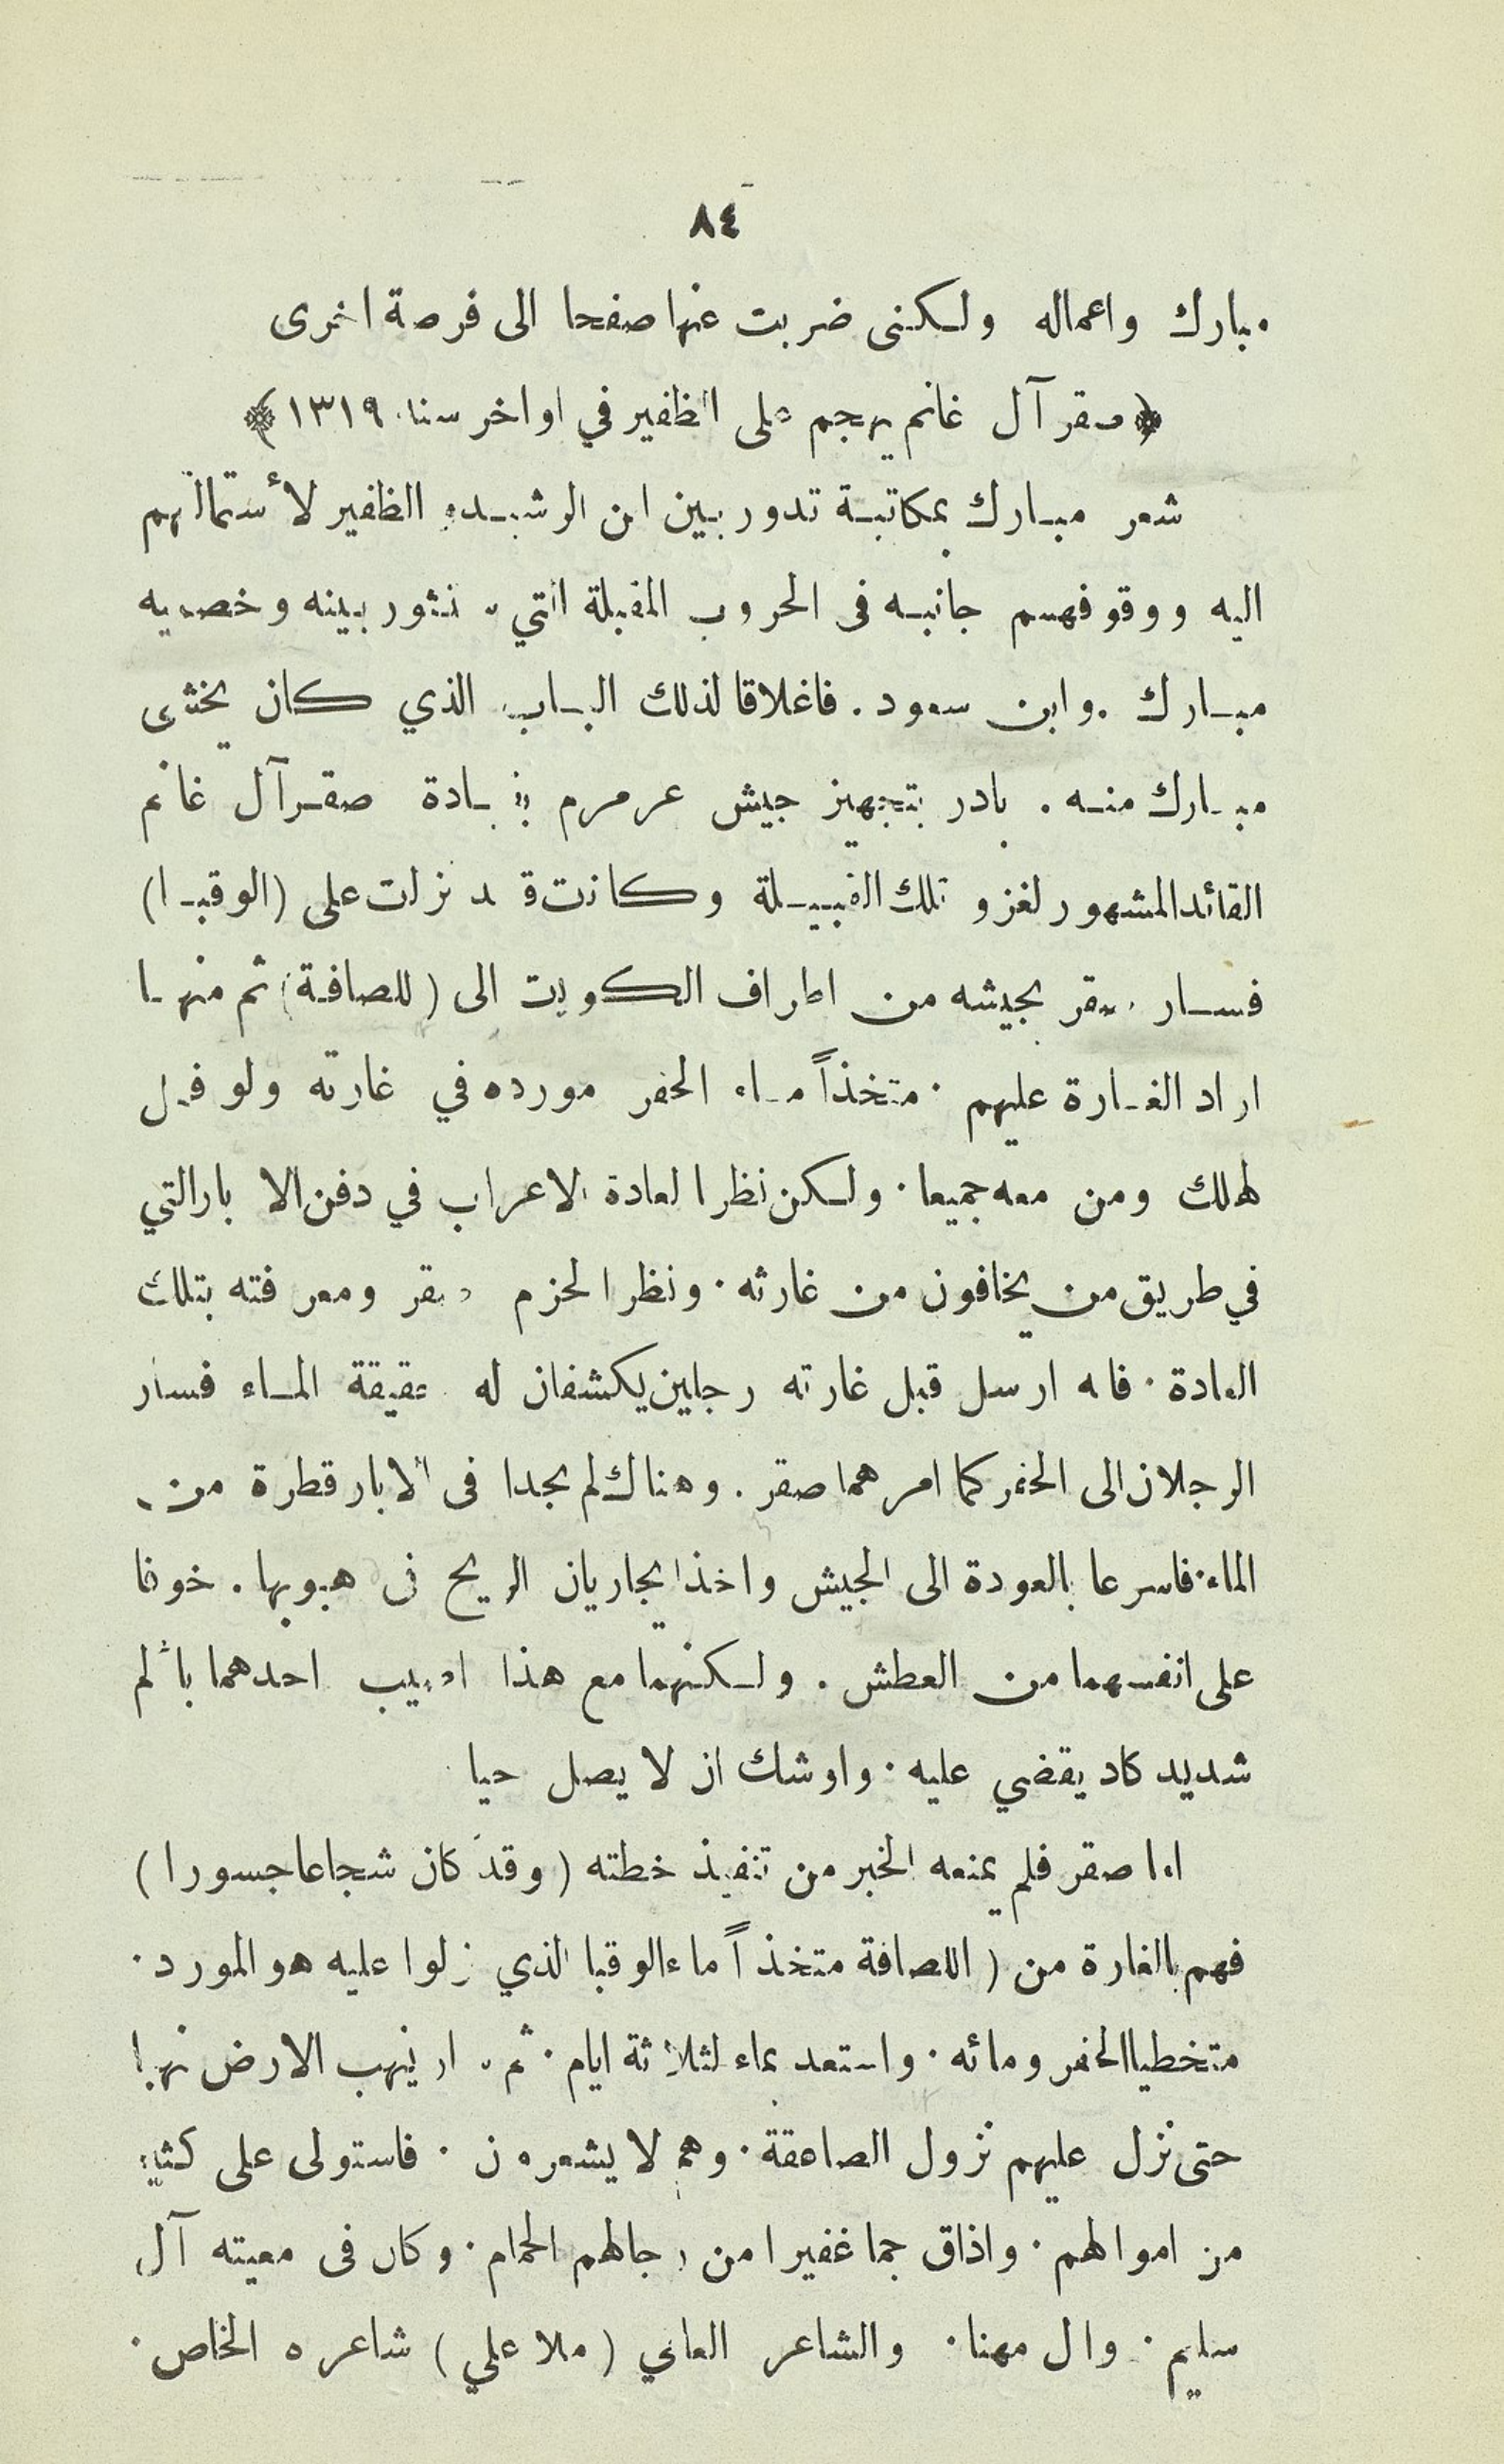 ٨٤
مبارك واعماله ولكنى ضربت عنها صفحا الى فرصة اخرى
﴿ صقر آل غانم يهجم على الظفير في اواخر سنة ١٣١٩ ﴾
شعر مبارك بمكاتبة تدور بين ابن الرشيد و الظفير لأستمالتهم
اليه ووقوفهم جانبه فى الحروب المقبلة التي ستثور بينه وخصميه
مبارك . وابن سعود . فاغلاقا لذلك الباب الذي كان يخشى
مبارك منه . بادر بتجهيز جيش عرمرم بقيادة صقر آل غانم
القائد المشهور لغزو تلك القبيلة وكانت قد نزلت على (الوقبا)
فسار صقر بجيشه من اطراف الكويت الى (للصافة) ثم منها
اراد الغارة عليهم . متخذاً ماء الحفر مورده في غارته ولو فعل
لهلك ومن معه جميعا . ولكن نظرا لعادة الاعراب في دفن الابار التي
في طريق من يخافون من غارته . ونظرا لحزم صقر ومعرفته بتلك
العادة . فانه ارسل قبل غارته رجلين يكشفان له حقيقة الماء فسار
الرجلان الى الحفر كما امرهما صقر . وهناك لم يجدا فى الابار قطرة من
الماء . فاسرعا بالعودة الى الجيش واخذا يجاريان الريح فى هبوبها . خوفا
على انفسهما من العطش . ولكنهما مع هذا اصيب احدهما بألم
شديد كاد يقضي عليه . واوشك ان لا يصل حيا
اما صقر فلم يمنعه الخبر من تنفيذ خطته ( وقد كان شجاعا جسورا )
فهم بالغارة من ( اللصافة متخذاً ماء الوقبا الذي نزلوا عليه هو المورد .
متخطيا الحفر ومائه . واستعد بماء لثلاثة ايام . ثم سار ينهب الارض نهبا
حتى نزل عليهم نزول الصاعقة . وهم لا يشعرون . فاستولى على كثير
من اموالهم . واذاق جما غفيرا من رجالهم الحمام . وكان فى معيته آل
سليم . وال مهنا . والشاعر العامي ( ملا علي ) شاعره الخاص .